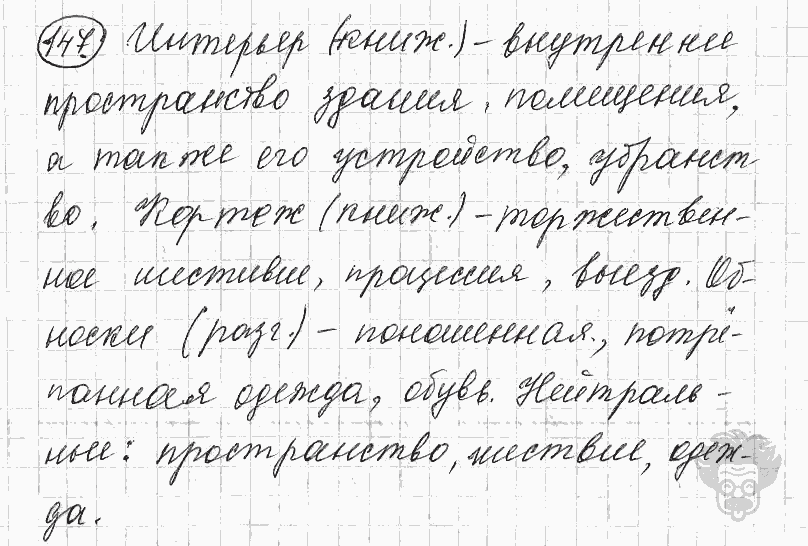 147. Интерьер (книж.) – внутреннее
пространство здания, помещения,
а также его устройство, убранст-
во. Кортеж (книж.) – торжествен-
ное шествие, процессия, выезд. Об-
носки (разг.) – поношенная, потрё-
панная одежда, обувь. Нейтраль-
ные: пространство, шествие, одеж-
да.